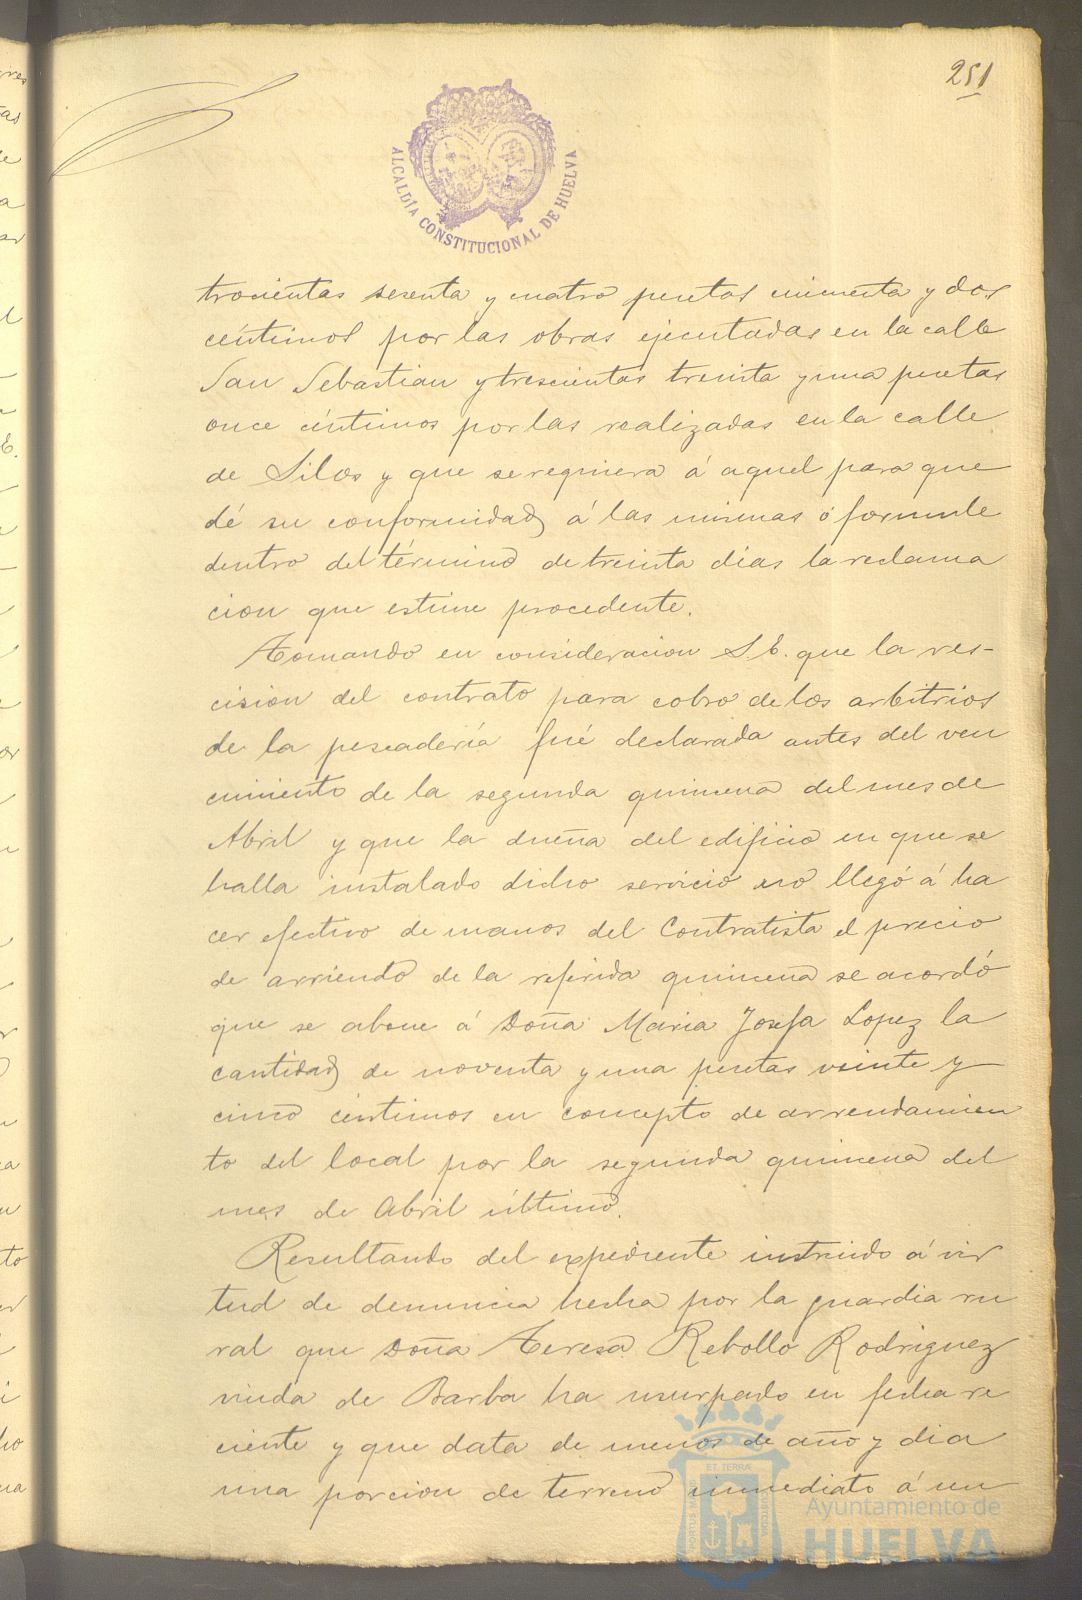 251
ALCALDÍA CONSTITUCIONAL DE HUELVA
trocientas sesenta y cuatro pesetas cincuenta y dos
céntimos por las obras ejecutadas en la calle
San Sebastian y trescientas treinta y una pesetas
once céntimos por las realizadas en la calle
de Silos y que se requiera á aquel para que
dé su conformidad á las mismas ó formule
dentro del término de treinta dias la reclama
cion que estime procedente.
Tomando en consideracion S. E. que la res-
cision del contrato para cobro de los arbitrios
de la pescadería fué declarada antes del ven
cimiento de la segunda quincena del mes de
Abril y que la dueña del edificio en que se
halla instalado dicho servicio no llegó á ha
cer efectivo de manos del Contratista el precio
de arriendo de la referida quincena se acordó
que se abone á Doña Maria Josefa Lopez la
cantidad de noventa y una pesetas veinte y
cinco céntimos en concepto de arrendamien
to del local por la segunda quincena del
mes de Abril último.
Resultando del expediente instruido á vir
tud de denuncia hecha por la guardia ru
ral que Doña Teresa Rebollo Rodriguez
viuda de Barba ha usurpado en fecha re
ciente y que data de menos de año y dia
una porcion de terreno inmediato á un
Ayuntamiento de
HUELVA